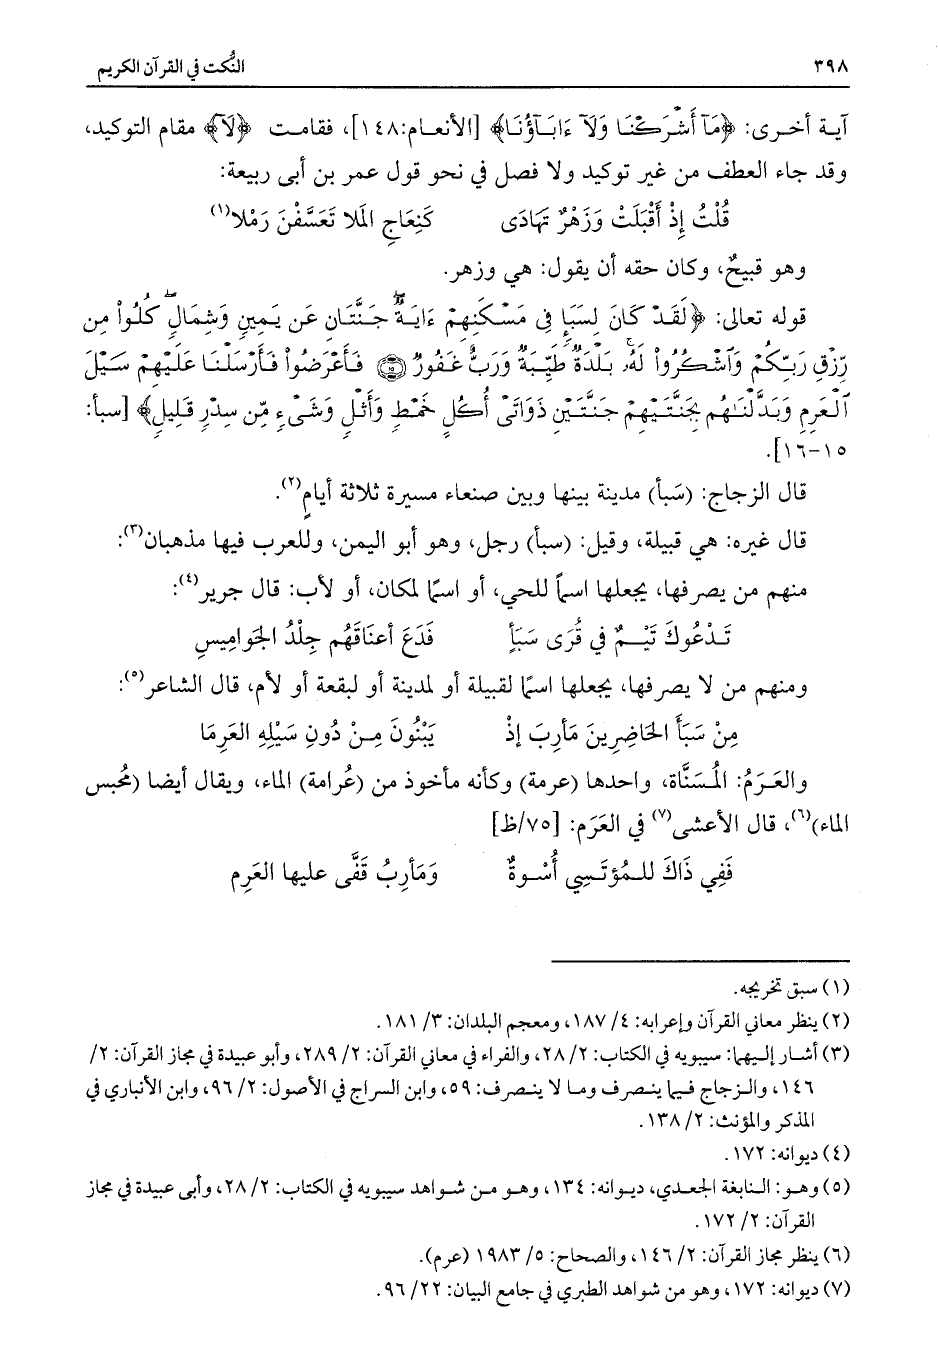 ٣٩٨ النُّكت في القرآن الكريم
آية أخرى: ﴿مَآ أَشْرَكْنَا وَلَآ ءَابَآؤُنَا﴾ [الأنعام:١٤٨]، فقامت ﴿لَآ﴾ مقام التوكيد،
وقد جاء العطف من غير توكيد ولا فصل في نحو قول عمر بن أبى ربيعة:
قُلْتُ إِذْ أَقْبَلَتْ وَزَهْرٌ تَهَادَى كَنِعَاجِ المَلا تَعَسَّفْنَ رَمْلا(١)
وهو قبيحٌ، وكان حقه أن يقول: هي وزهر.
قوله تعالى: ﴿لَقَدْ كَانَ لِسَبَإٍ فِى مَسْكَنِهِمْ ءَايَةٌ جَنَّتَانِ عَن يَمِينٍ وَشِمَالٍ كُلُوا۟ مِن
رِّزْقِ رَبِّكُمْ وَٱشْكُرُوا۟ لَهُۥ بَلْدَةٌ طَيِّبَةٌ وَرَبٌّ غَفُورٌ ۝١٥ فَأَعْرَضُوا۟ فَأَرْسَلْنَا عَلَيْهِمْ سَيْلَ
ٱلْعَرِمِ وَبَدَّلْنَـٰهُم بِجَنَّتَيْهِمْ جَنَّتَيْنِ ذَوَاتَىْ أُكُلٍ خَمْطٍ وَأَثْلٍ وَشَىْءٍ مِّن سِدْرٍ قَلِيلٍ﴾ [سبأ:
١٥-١٦].
قال الزجاج: (سَبأ) مدينة بينها وبين صنعاء مسيرة ثلاثة أيامٍ(٢).
قال غيره: هي قبيلة، وقيل: (سبأ) رجل، وهو أبو اليمن، وللعرب فيها مذهبان(٣):
منهم من يصرفها، يجعلها اسماً للحي، أو اسمًا لمكان، أو لأب: قال جرير(٤):
تَدْعُوكَ تَيْمٌ في قُرَى سَبَأٍ قَدَعَ أعنَاقَهُم جِلْدُ الجَوامِيسِ
ومنهم من لا يصرفها، يجعلها اسمًا لقبيلة أو لمدينة أو لبقعة أو لأم، قال الشاعر(٥):
مِنْ سَبَأَ الحَاضِرِينَ مَأرِبَ إذْ يَبْنُونَ مِنْ دُونِ سَيْلِهِ العَرِمَا
والعَرَمُ: المُسَنَّاة، واحدها (عرمة) وكأنه مأخوذ من (عُرامة) الماء، ويقال أيضا (مَحُبس
الماء)(٦)، قال الأعشى(٧) في العَرَم: [٧٥/ظ]
فَفِي ذَاكَ للمُؤتَسِي أُسْوةٌ وَمَأرِبُ قَفَّى عليها العَرِم
(١) سبق تخريجه.
(٢) ينظر معاني القرآن وإعرابه: ٤/ ١٨٧، ومعجم البلدان: ٣/ ١٨١.
(٣) أشار إليهما: سيبويه في الكتاب: ٢/ ٢٨، والفراء في معاني القرآن: ٢/ ٢٨٩، وأبو عبيدة في مجاز القرآن: ٢/
١٤٦، والزجاج فيما ينصرف وما لا ينصرف: ٥٩، وابن السراج في الأصول: ٢/ ٩٦، وابن الأنباري في
المذكر والمؤنث: ٢/ ١٣٨.
(٤) ديوانه: ١٧٢.
(٥) وهو: النابغة الجعدي، ديوانه: ١٣٤، وهو من شواهد سيبويه في الكتاب: ٢/ ٢٨، وأبى عبيدة في مجاز
القرآن: ٢/ ١٧٢.
(٦) ينظر مجاز القرآن: ٢/ ١٤٦، والصحاح: ٥/ ١٩٨٣ (عرم).
(٧) ديوانه: ١٧٢، وهو من شواهد الطبري في جامع البيان: ٢٢/ ٩٦.